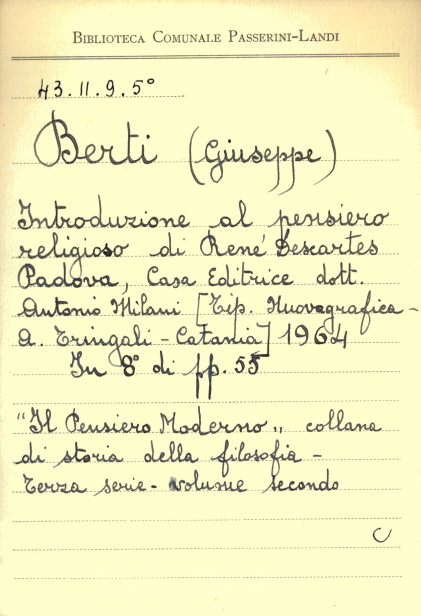 BIBLIOTECA COMUNALE PASSERINI-LANDI
43.11.9.5°
Berti (Giuseppe)
Introduzione al pensiero
religioso di René Descartes
Padova, Casa Editrice dott.
Antonio Milani [Tip. Nuovagrafica -
A. Tringali - Catania] 1964
In 8° di pp. 55
"Il Pensiero Moderno„ collana
di storia della filosofia -
Terza serie - volume secondo
C